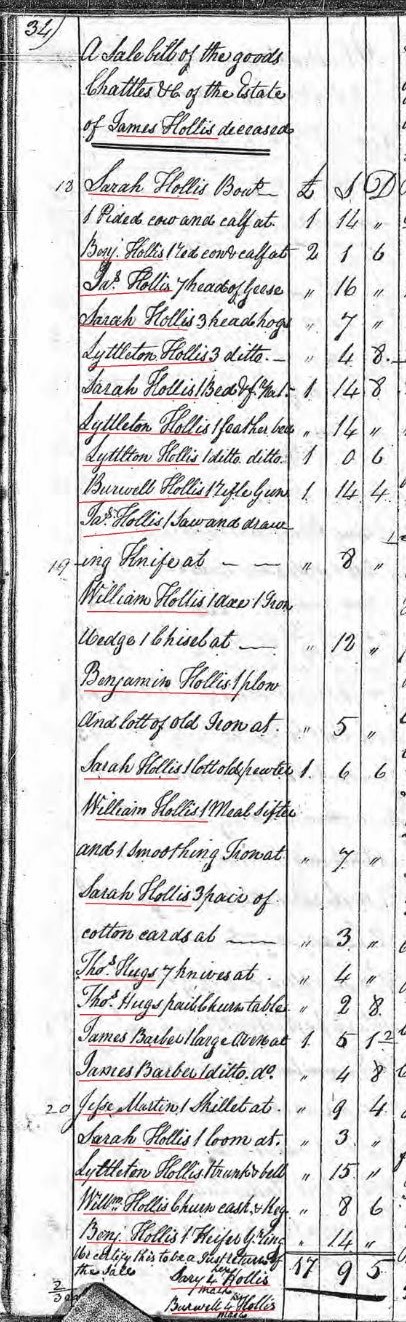 34)
A Sale bill of the goods
Chattles &C of the Estate
of James Hollis deceased
18 Sarah Hollis Bowt — £ S D
1 Pided cow and calf at 1 14 "
Benj. Hollis 1 red cow & calf at 2 1 6
Jas. Hollis 7 head of Geese " 16 "
Sarah Hollis 3 head hogs " 7 "
Lyttleton Hollis 3 ditto — " 4 8
Sarah Hollis 1 Bed & 1 14 8
Lyttleton Hollis 1 feather bed " 14 "
Lyttleton Hollis 1 ditto ditto 1 0 6
Burwell Hollis 1 rifle Gun 1 14 4
Jas. Hollis 1 Saw and draw
19 ing Knife at — — " 8 "
William Hollis 1 axe 1 Iron
Wedge 1 Chisel at — " 12 "
Benjamin Hollis 1 plow
and lott of old Iron at " 5 "
Sarah Hollis 1 lott old pewter 1 6 6
William Hollis 1 Meal Sifter
and 1 Smoothing Iron at " 7 "
Sarah Hollis 3 pair of
cotton cards at — " 3 "
Thos. Hugs 7 knives at " 4 "
Thos. Hugs pail Churn table " 2 8
James Barber 1 large oven at 1 5 1½
James Barber 1 ditto do. " 4 8
20 Jesse Martin 1 Skillet at " 9 4
Sarah Hollis 1 loom at " 3 "
Lyttleton Hollis 1 trunk & bell " 15 "
Willm Hollis Churn cask & Keg " 8 6
Benj. Hollis 1 Heifer Y.ling " 14 "
We certify this to be a Just return of
the Sale 17 9 5
Sary her Hollis
mark
Burwell Hollis
mark